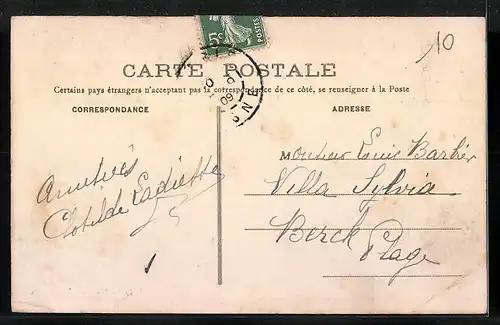 5c
POSTES
10
CARTE POSTALE
Certains pays étrangers n'acceptant pas la correspondance de ce côté, se renseigner à la Poste
CORRESPONDANCE
ADRESSE
Amitiés
Clotilde
Monsieur Louis Barbier
Villa Sylvia
Berck Plage